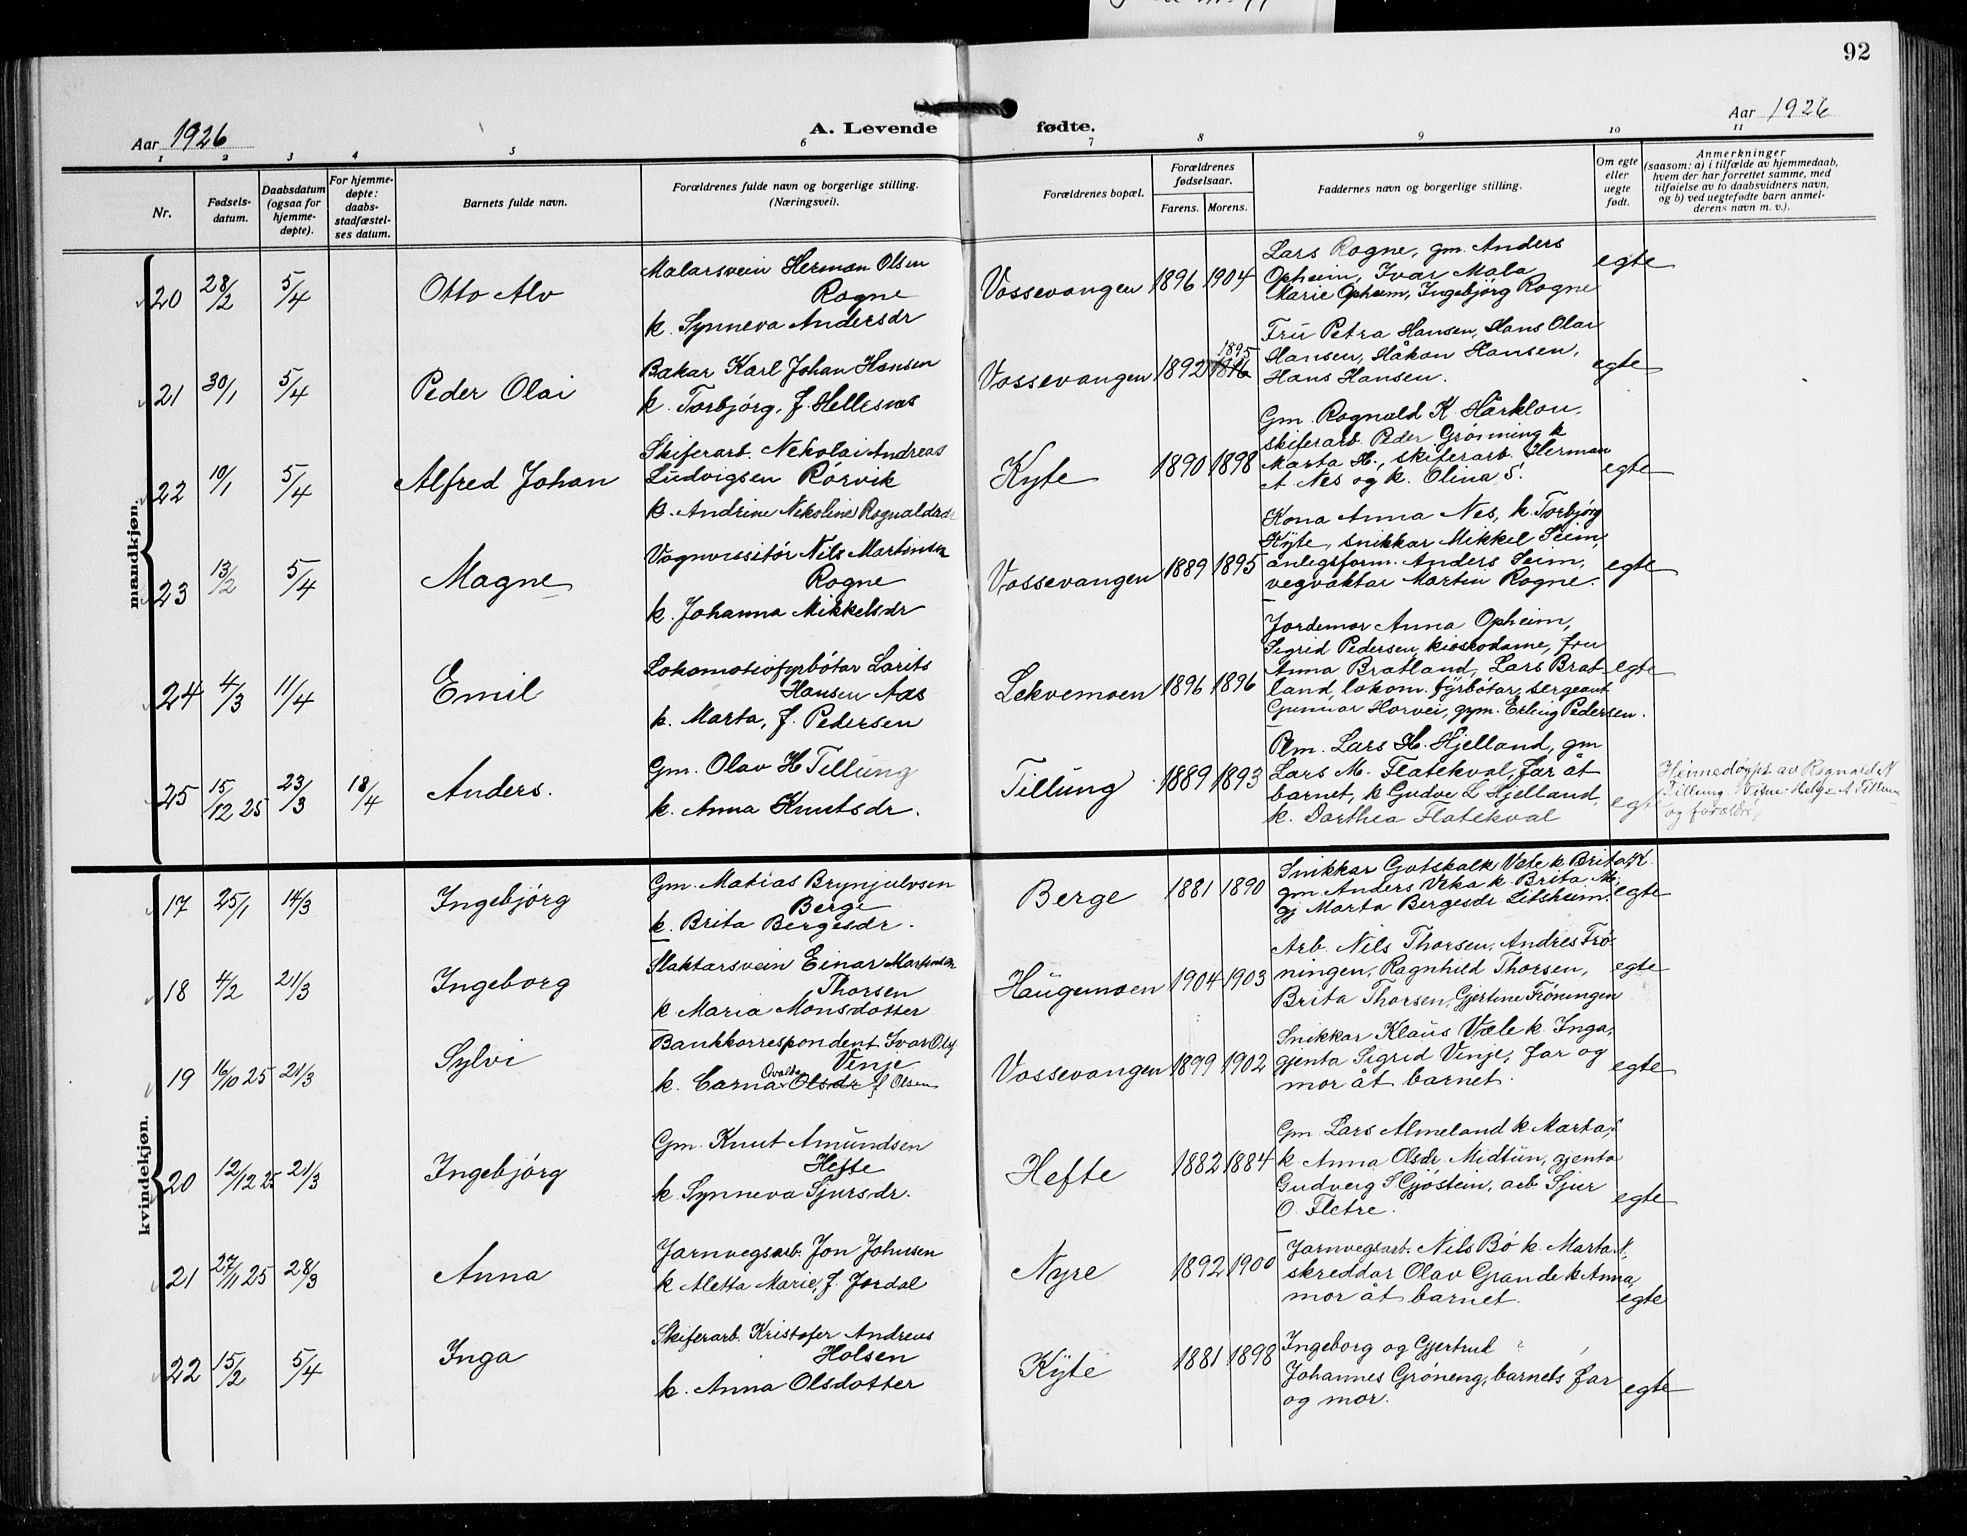 92
Aar 1926
A. Levende
fødte.
Aar 1926
1 2 3 4 5 6 7 8 9 10 11
Nr.
Fødsels-
datum.
Daabsdatum
(ogsaa for
hjemme-
døpte).
For hjemme-
døpte:
daabs-
stadfæstel-
ses datum.
Barnets fulde navn.
Forældrenes fulde navn og borgerlige stilling.
(Næringsvei).
Forældrenes bopæl.
Forældrenes
fødselsaar.
Farens. Morens.
Faddernes navn og borgerlige stilling.
Om egte
eller
uegte
født.
Anmerkninger
(saasom: a) i tilfælde av hjemmedaab,
hvem der har forrettet samme, med
tilføielse av to daabsvidners navn,
og b) ved uegtefødte barn anmel-
derens navn m. v.).
mandkjøn.
20 28/2 5/4 Otto Alv
Malarsvein Herman Olsen
Rogne
k. Synneva Andersdr
Vossevangen 1896 1904
Lars Rogne, gm. Anders
Opheim, Ivar Mala
Marie Opheim, Ingebjørg Rogne
egte
21 30/1 5/4 Peder Olai
Bakar Karl Johan Hansen
k. Torbjørg, f. Hellesnes
Vossevangen 1892 1895
Fru Petra Hansen, Hans Olai
Hansen, Håkon Hansen,
Hans Hansen.
egte
22 10/1 5/4 Alfred Johan
Skiferarb. Nekolai Andreas
Ludvigsen Rørvik
k. Andrine Nekoline Rognaldsdr
Kyte 1890 1898
Gm. Rognald K. Hårklou,
skiferarb. Peder Grønning k
Marta H., skiferarb. Herman
A Nes og k. Olina S.
egte
23 13/2 5/4 Magne
Vognvisitør Nils Martinsen
Rogne
k. Johanna Mikkelsdr
Vossevangen 1889 1895
Kona Anna Nes, k. Torbjørg
Kyte, snikkar Mikkel Seim,
anlegsform. Anders Seim,
vegvaktar Martin Rogne.
egte
24 4/3 11/4 Emil
Lokomotivfyrbøtar Larits
Hansen Aas
k. Marta, f. Pedersen
Lekvemoen 1896 1896
Jordemor Anna Opheim,
Sigrid Pedersen, kioskdame, fru
Anna Bratland, Lars Brat-
land, lokom. fyrbøtar, sergeant
Gunnar Horvei, gym. Erling Pedersen.
egte
25 15/12 25 23/3 18/4 Anders.
Gm. Olav H Tillung
k. Anna Knutsdr.
Tillung 1889 1893
Plm. Lars H. Hjelland, gm
Lars M. Flatekval, far åt
barnet, k Gudve L Hjelland,
k. Dorthea Flatekval
egte
Heimedøypt av Rognald N
Tillung. Vitne: Helge A Tillung
og foreldri
kvindekjøn.
17 25/1 14/3 Ingebjørg
Gm. Matias Brynjulvsen
Berge
k. Brita Bergesdr.
Berge 1881 1890
Snikkar Gotskalk Væle k Brita K.
gm Anders Veka k. Brita M.
gj Marta Bergesdr Litsheim.
egte
18 4/2 21/3 Ingeborg
Slaktarsvein Einar Martinsen
Thorsen
k Maria Monsdotter
Haugemoen 1904 1903
Arb. Nils Thorsen, Andres Frø-
ningen, Ragnhild Thorsen,
Brita Thorsen, Gjertine Frøningen
egte
19 16/10 25 21/3 Sylvi
Bankkorrespondent Ivar Olsf
Vinje
k. Carna Olsdr f Olsen
Vossevangen 1899 1902
Snikkar Klaus Væle k. Inga,
gjenta Sigrid Vinje, far og
mor åt barnet.
egte
20 12/12 25 21/3 Ingebjørg
Gm. Knut Amundsen
Hefte
k. Synneva Sjursdr.
Hefte 1882 1884
Gm. Lars Almeland k. Marta,
k. Anna Olsdr. Midtun, gjenta
Gudveig S Gjøstein, arb. Sjur
O. Fletre.
egte
21 27/11 25 28/3 Anna
Jarnvegsarb. Jon Johnsen
k Aletta Marie, f. Jordal
Nyre 1892 1900
Jarnvegsarb. Nils Bø k. Marta N.
skreddar Olav Grande k Anna,
mor åt barnet.
egte
22 15/2 5/4 Inga
Skiferarb. Kristofer Andreas
Holsen
k. Anna Olsdotter
Kyte 1881 1898
Ingeborg og Gjertrud
Johannes Grøneng, barnets far
og mor.
egte